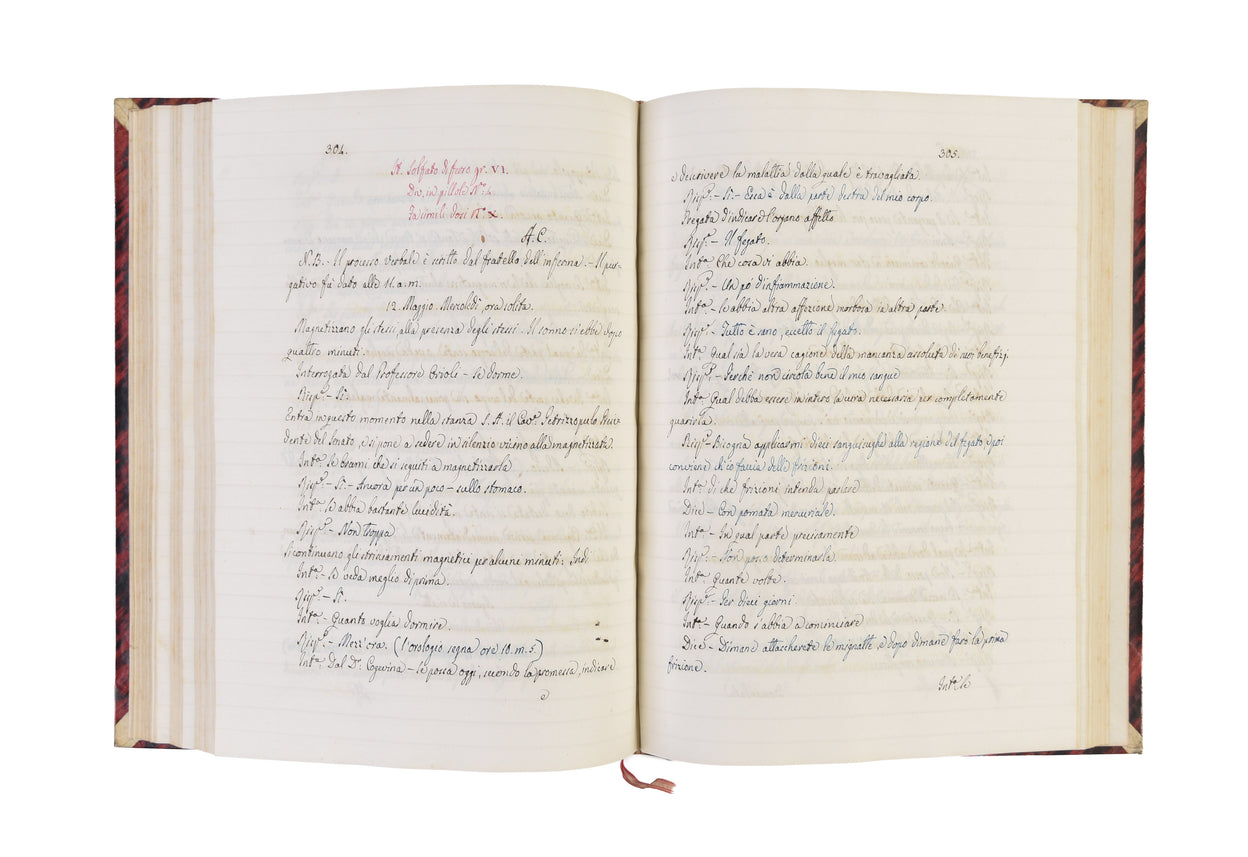 304.
R. Solfato di ferro gr. VI.
Div. in pillole N.° 4.
Fa simili dosi N.° X.
A. C.
N.B. - Il processo verbale è scritto dal fratello dell'inferma. - Il pur-
gativo fu dato alle 11. a. m.
12. Maggio. Mercoldì, ora solita.
Magnetizzano gli stessi, alla presenza degli stessi. Il sonno si ebbe dopo
quattro minuti.
Interrogata dal Professore Orioli - se dorme.
Risp.ª - Sì.
Entra in questo momento nella stanza S. A. il Cav.e Petrizzopulo Presi-
dente del Senato, e si pone a sedere in silenzio vicino alla magnetizzata.
Int.ª Se brami che si seguiti a magnetizzarla
Risp.ª - Sì - Ancora per un poco - sullo stomaco.
Int.ª se abbia bastante lucidità.
Risp.ª - Non troppa
Si continuano gli strisciamenti magnetici per alcuni minuti: Indi
Int.ª - Se veda meglio di prima.
Risp.ª - Sì.
Int.ª - Quanto voglia dormire.
Risp.ª - Mezz'ora. (l'orologio segna ore 10. m. 5.)
Int.ª dal D.r Cogevina - se possa oggi, secondo la promessa, indicare
e
305.
e descrivere la malattia dalla quale è travagliata.
Risp.ª - Sì. - Essa è dalla parte destra del mio corpo.
Pregata d'indicare l'organo affetto
Risp.ª - Il fegato.
Int.ª Che cosa vi abbia.
Risp.ª - Un pò d'infiammazione.
Int.ª - Se abbia altra affezione morbosa in altra parte.
Risp.ª - Tutto è sano, eccetto il fegato.
Int.ª Qual sia la vera cagione della mancanza assoluta di suoi benefizj
Risp.ª - Perchè non circola bene il mio sangue
Int.ª Qual debba essere in intero la cura necessaria per completamente
guarirla.
Risp.ª - Bisogna applicarmi dieci sanguisughe alla regione del fegato, e poi
conviene ch'io faccia delle frizioni.
Int.ª di che frizioni intenda parlare
Dice - Con pomata mercuriale.
Int.ª - In qual parte precisamente
Risp.ª - Non posso determinarla.
Int.ª Quante volte.
Risp.ª - Per dieci giorni.
Int.ª - Quando s'abbia a cominciare
Dice - Dimane attaccherete le mignatte, e dopo dimane farò la prima
frizione.
Int.ª se